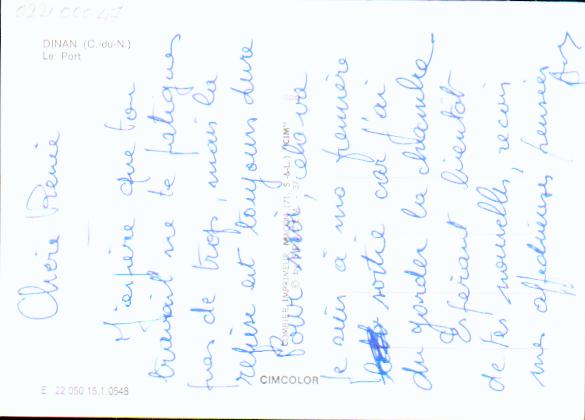 0221 000 47
DINAN (C.-du-N.)
Le Port
Chère Renée
J'espère que ton
travail ne te fatigues
pas de trop, mais la
reprise est toujours dure
pour moi, cela va
je suis à ma première
sortie car j'ai
du garder la chambre.
Esperant bientôt
de tes nouvelles, recois
mes affectueuses pensées
COMBIER IMPRIMEUR MACON (71, S.-&-L.) "CIM"
CIMCOLOR
E 22 050 15.1.0548